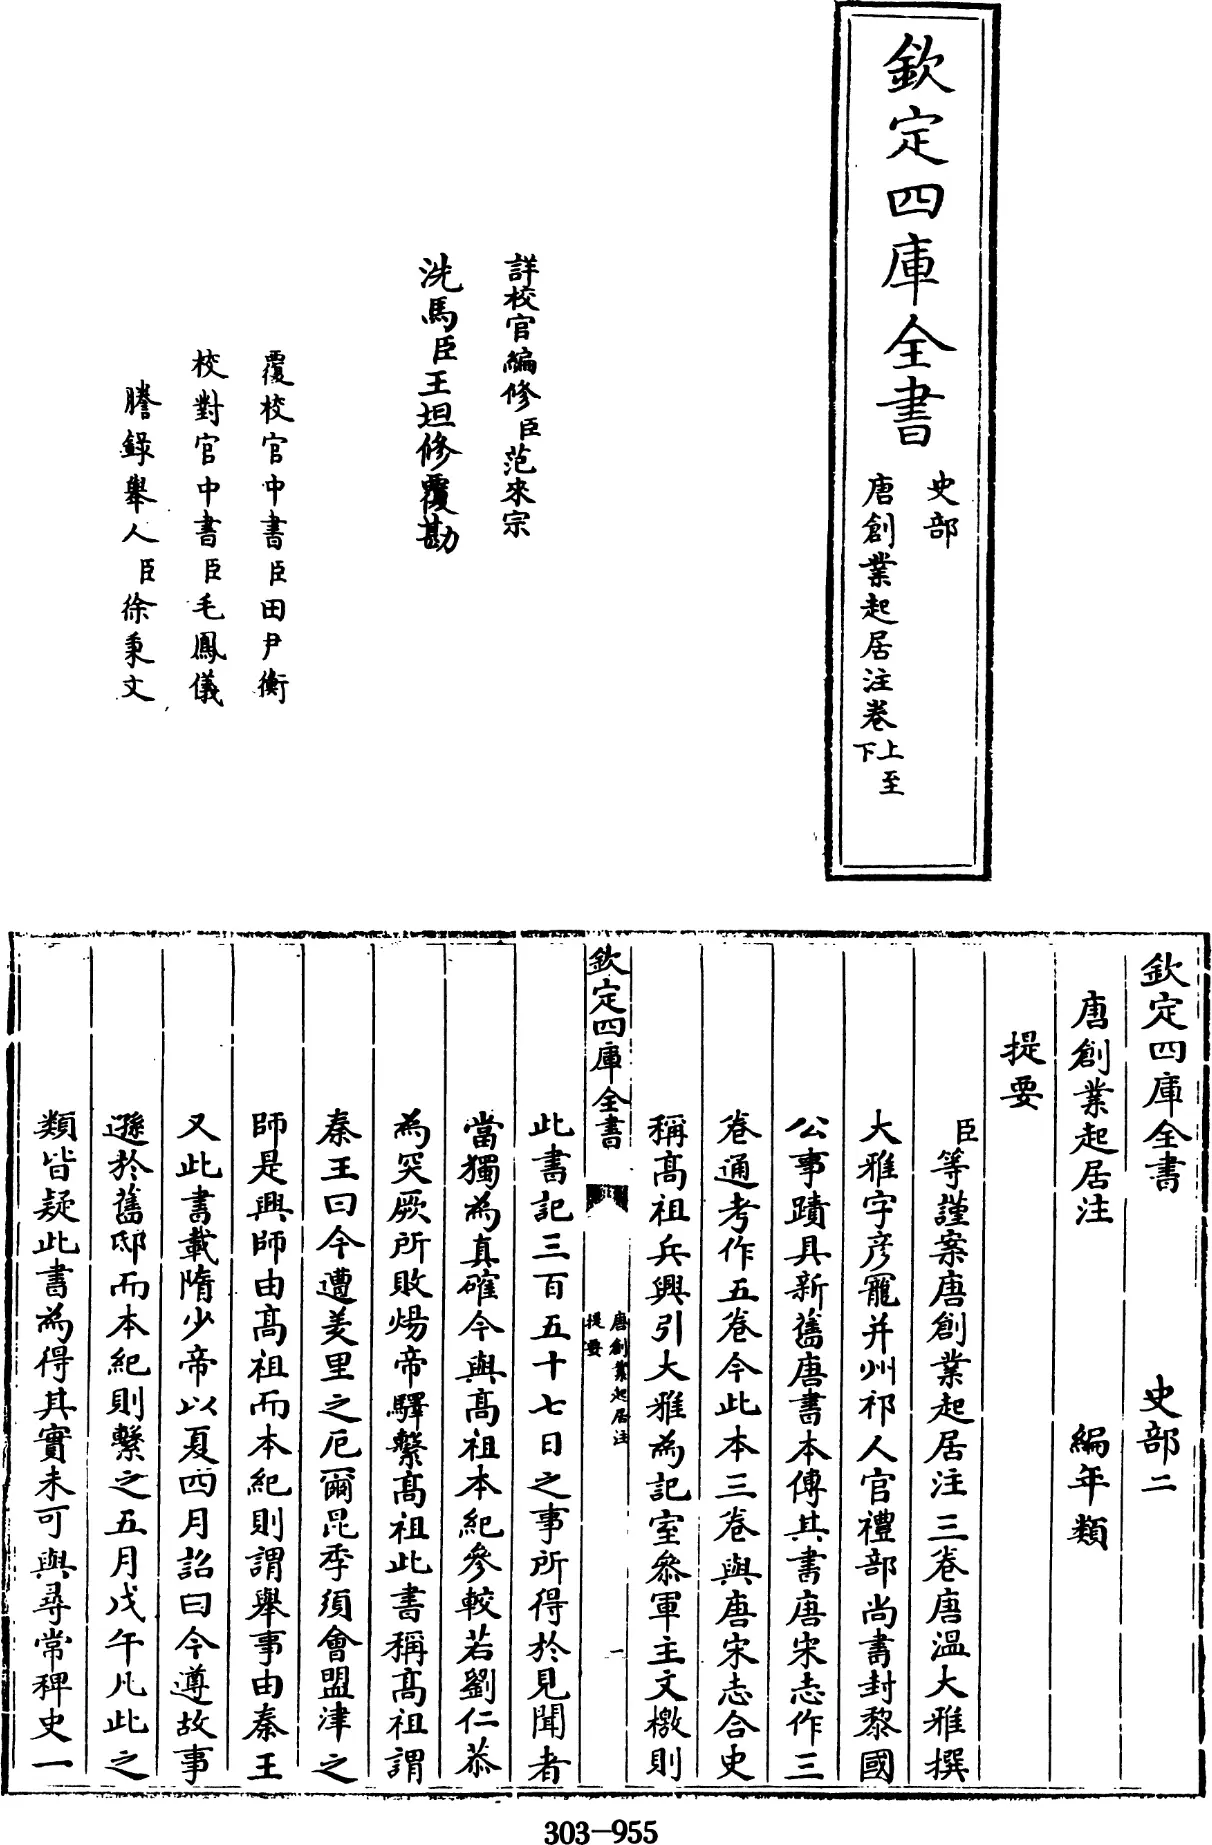 欽定四庫全書
史部
唐創業起居注卷上至下
詳校官編修臣范來宗
洗馬臣王坦修覆勘
覆校官中書臣田尹衡
校對官中書臣毛鳳儀
謄錄舉人臣徐秉文
欽定四庫全書 史部二
唐創業起居注 編年類
提要
臣等謹案唐創業起居注三卷唐溫大雅撰
大雅字彦寵并州祁人官禮部尚書封黎國
公事蹟具新舊唐書本傳其書唐宋志作三
卷通考作五卷今此本三卷與唐宋志合史
稱髙祖兵興引大雅為記室叅軍主文檄則
欽定四庫全書
唐創業起居注
提要
一
此書記三百五十七日之事所得於見聞者
當獨為真確今與髙祖本紀參較若劉仁恭
為突厥所敗煬帝驛繫髙祖此書稱髙祖謂
秦王曰今遭羑里之厄爾昆季須會盟津之
師是興師由髙祖而本紀則謂舉事由秦王
又此書載隋少帝以夏四月詔曰今遵故事
遜於舊邸而本紀則繫之五月戊午凡此之
類皆疑此書為得其實未可與尋常稗史一
303-955